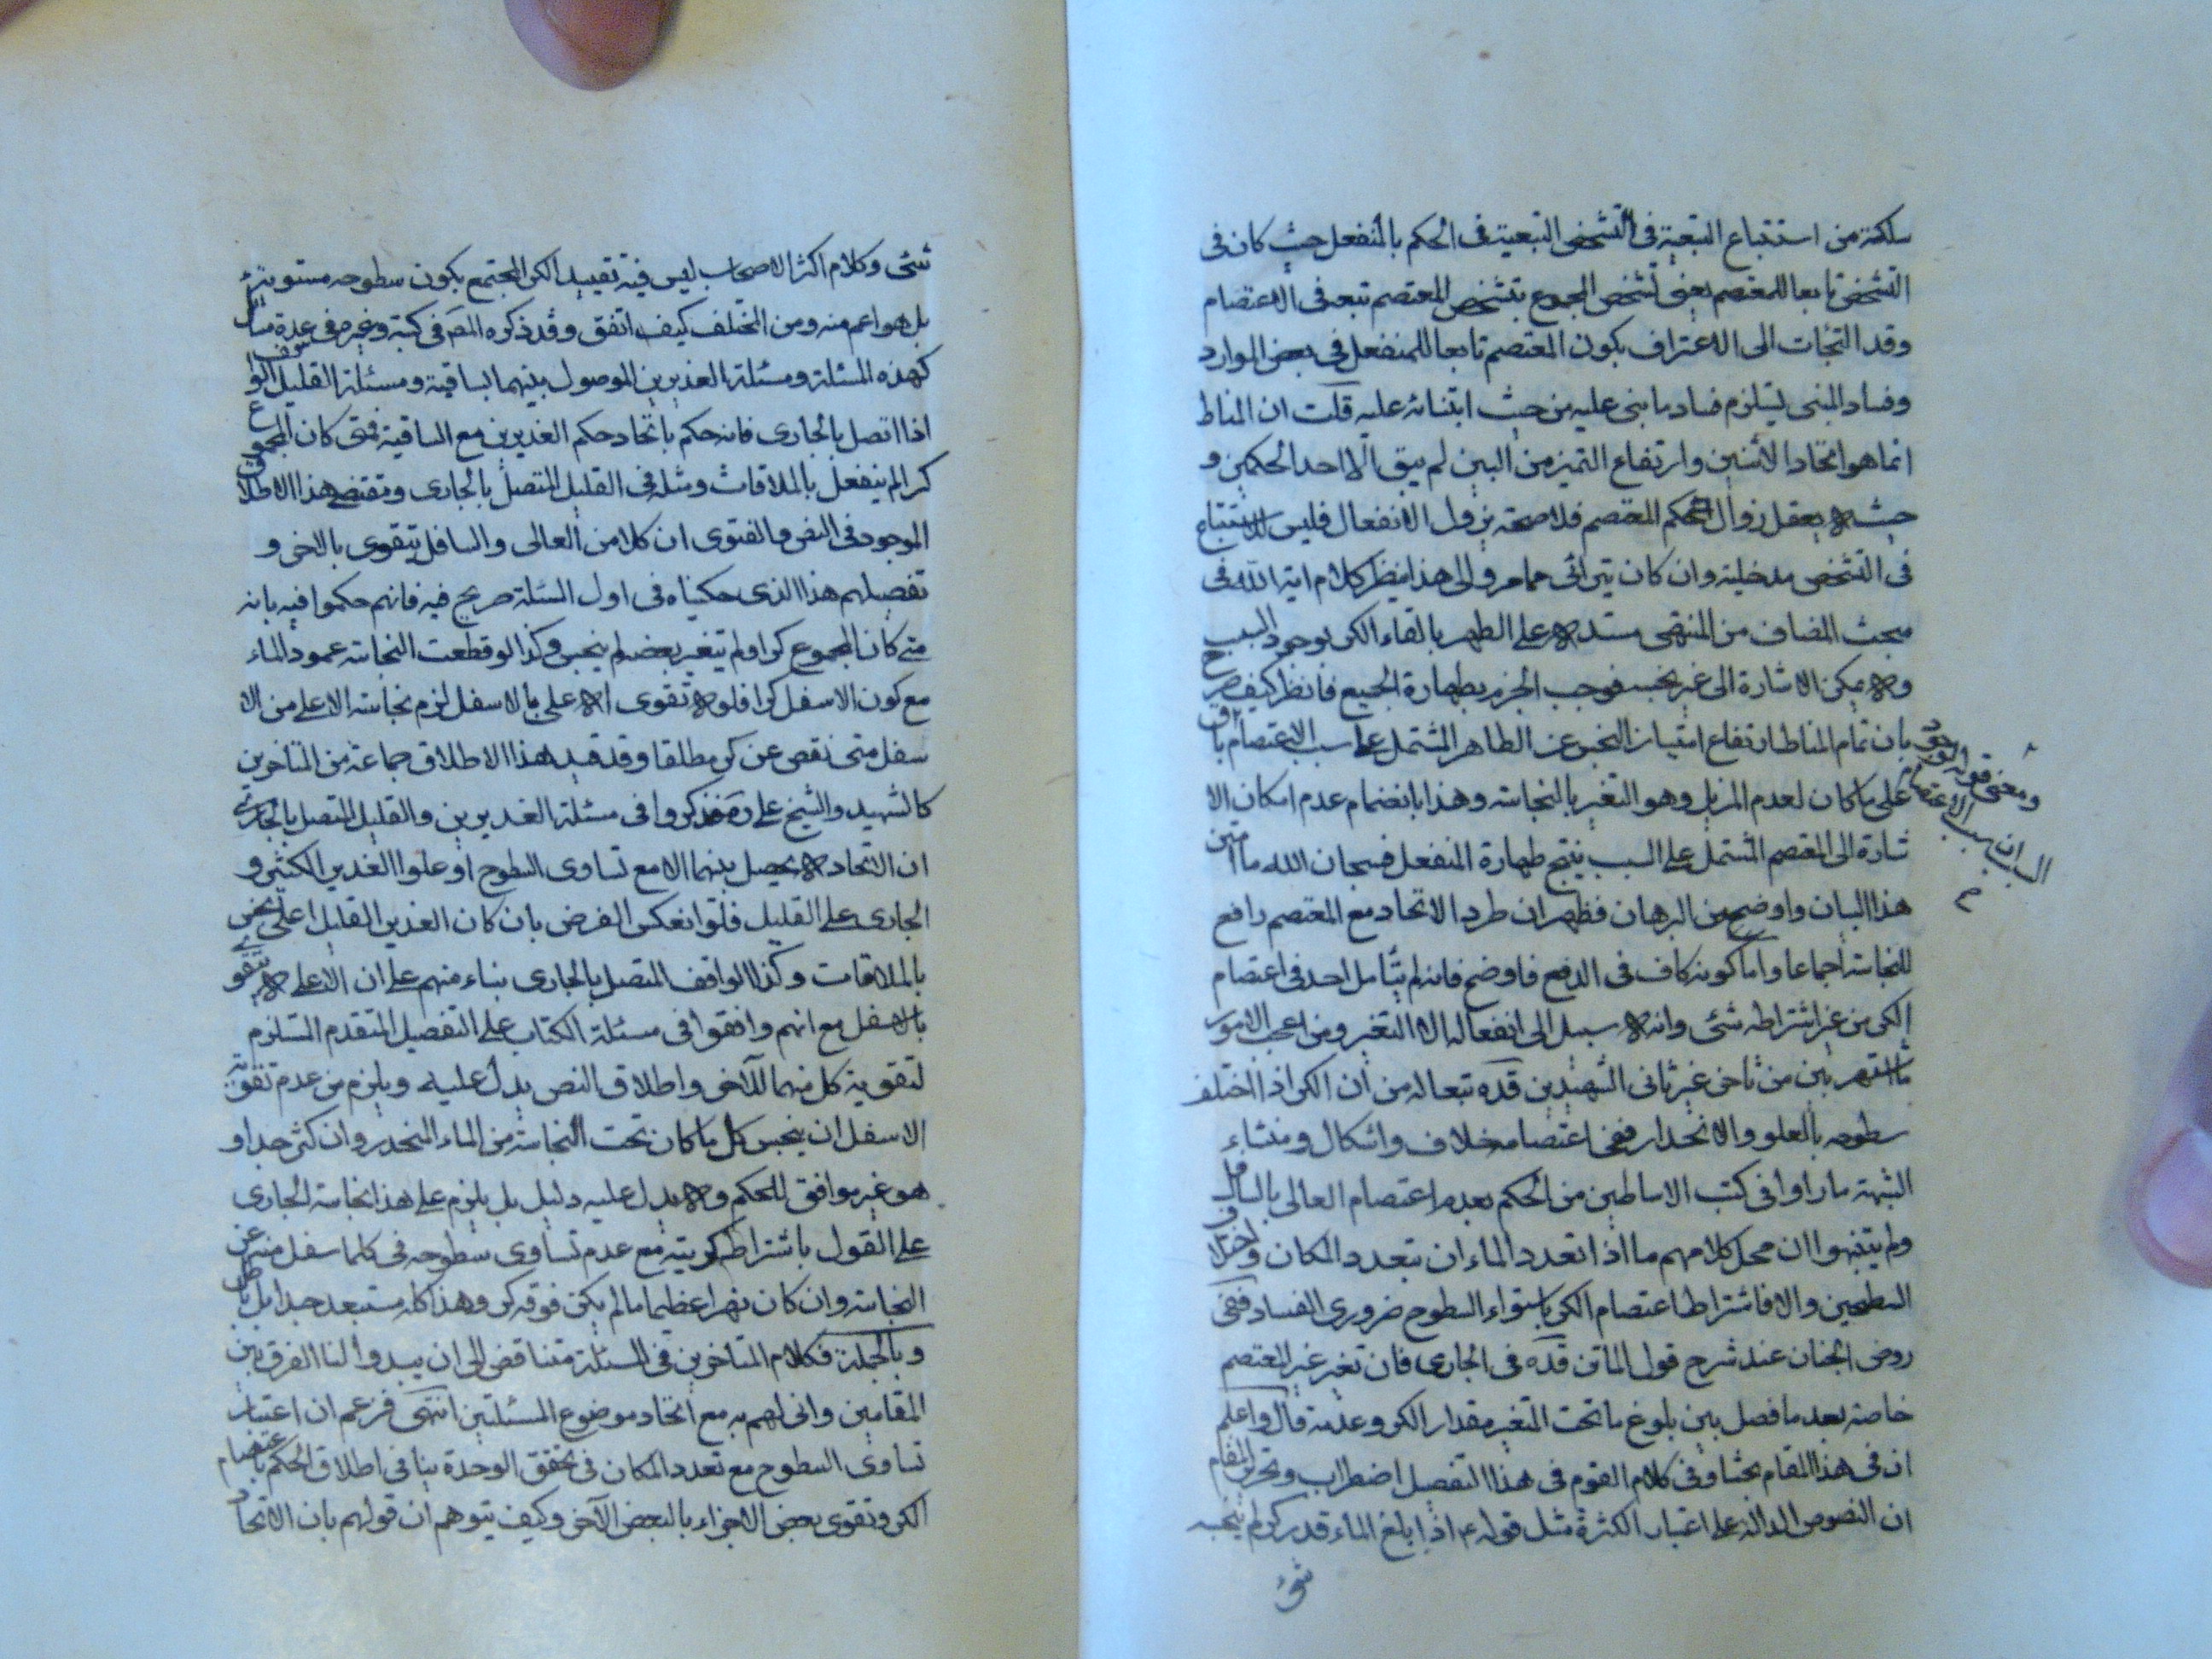 سلكته من استتباع التبعية في التشخص التبعية في الحكم بالمنفعل حيث كان في
التشخص تابعا للمعتصم يعني تشخص المجموع بتشخص المعتصم تبعه في الاعتصام
وقد التجأت الى الاعتراف بكون المعتصم تابعا للمنفعل في بعض الموارد
وفساد المبنى يستلزم فساد ما بنى عليه من حيث ابتنائه عليه قلت ان المناط
انما هو اتحاد الاثنين وارتفاع التميز من البين لم يبق الا احد الحكمين و
حيث لا يعقل زوال حكم المعتصم فلا محة يزول الانفعال فليس للاستتباع
في التشخص مدخلية وان كان يترائى مما مر والى هذا ينظر كلام اية الله في
مبحث المضاف من المنتهى مستدلا على الطهر بالقاء الكر لوجود السبب
ولا يمكن الاشارة الى عين نجسه فوجب الجزم بطهارة الجميع فانظر كيف صرح
بان تمام المناط ارتفاع امتياز النجس عن الطاهر المشتمل على سبب الاعتصام باق
على ما كان لعدم المزيل وهو التغير بالنجاسة وهذا بانضمام عدم امكان الا
شارة الى المعتصم المشتمل على السبب ينتج طهارة المنفعل فسبحان الله ما امتن
هذا البيان واوضح من البرهان فظهر ان طرد الاتحاد مع المعتصم رافع
للنجاسة اجماعا واما كونه كاف في الدفع فاوضح فانه لم يتأمل احد في اعتصام
الكر من غير اشتراطه شئ وانه لا سبيل الى انفعاله الا التغير ومن اعجب الامور
ما اشتهر بين من تاخر عن ثاني الشهيدين قده تبعا له من ان الكر اذا اختلف
سطوحه بالعلو والانحدار ففي اعتصامه خلاف واشكال ومنشاء
الشبهة ما راوا في كتب الاساطين من الحكم بعدم اعتصام العالي بالسافل
ولم يتنبهوا ان محل كلامهم ما اذا تعدد الماء ان بتعدد المكان واختلاف
السطحين والا فاشتراط اعتصام الكر باستواء السطوح ضروري الفساد ففي
روض الجنان عند شرح قول الماتن قده في الجاري فان تغير غير المعتصم
خاصة بعد ما فصل بين بلوغ ما تحت المتغير مقدار الكر وعدمه قال واعلم
ان في هذا المقام بحثا وفي كلام القوم في هذا التفصيل اضطراب وتحرير المقام
ان النصوص الدالة على اعتبار الكثرة مثل قوله ع اذا بلغ الماء قدر كر لم ينجسه
شئ
ومعنى قوله لوجود
السبب ان سبب الاعتصام
شئ وكلام اكثر الاصحاب ليس فيه تقييد الكر المجتمع بكون سطوحه مستوية
بل هو اعم منه ومن المختلف كيف اتفق وقد ذكره المص في كتبه وغيره في عدة مسائل
كهذه المسئلة ومسئلة الغديرين الموصول بينهما بساقية ومسئلة القليل الواقف
اذا اتصل بالجاري فانه حكم باتحاد حكم الغديرين مع الساقية فمتى كان المجموع
كرا لم ينفعل بالملاقات ومثله في القليل المتصل بالجاري ومقتضى هذا الاطلاق
الموجود في النص والفتوى ان كلا من العالي والسافل يتقوى بالاخر و
تفصيلهم هذا الذي حكيناه في اول المسئلة صريح فيه فانهم حكموا فيه بانه
متى كان المجموع كرا ولم يتغير بعضه لم ينجس وكذا لو قطعت النجاسة عمود الماء
مع كون الاسفل كرا فلو لا تقوى الاعلى بالاسفل لزم نجاسة الاعلى من الا
سفل متى نقص عن كر مطلقا وقد قيد هذا الاطلاق جماعة من المتاخرين
كالشهيد والشيخ على ره فذكروا في مسئلة الغديرين والقليل المتصل بالجاري
ان الاتحاد لا يحصل بينهما الا مع تساوى السطوح او علوا الغدير الكثير و
الجاري على القليل فلو انعكس الفرض بان كان الغدير القليل اعلى نجس
بالملاقات وكذا الواقف المتصل بالجاري بناء منهم على ان الاعلى لا يتقوى
بالاسفل مع انهم وافقوا في مسئلة الكتاب على التفصيل المتقدم المستلزم
لتقوية كل منهما للآخر واطلاق النص يدل عليه ويلزم من عدم تقوية
الاسفل ان ينجس كل ما كان تحت النجاسة من الماء المنحدر وان كثر جدا و
هو غير موافق للحكم ولا يدل عليه دليل بل يلزم على هذا نجاسة الجاري
على القول باشتراط كريته مع عدم تساوى سطوحه في كلما سفل منه عن
النجاسة وان كان نهرا عظيما ما لم يكن فوقه كر وهذا كله مستبعد جدا بل باطل
وبالجملة فكلام المتاخرين في المسئلة متناقض الى ان يبدوا لنا الفرق بين
المقامين وانى لهم به مع اتحاد موضوع المسئلتين انتهى فزعم ان اعتبار
تساوى السطوح مع تعدد المكان في تحقق الوحدة ينافي اطلاق الحكم باعتصام
الكر وتقوى بعض الاجزاء بالبعض الآخر وكيف يتوهم ان قولهم بان الاتحاد